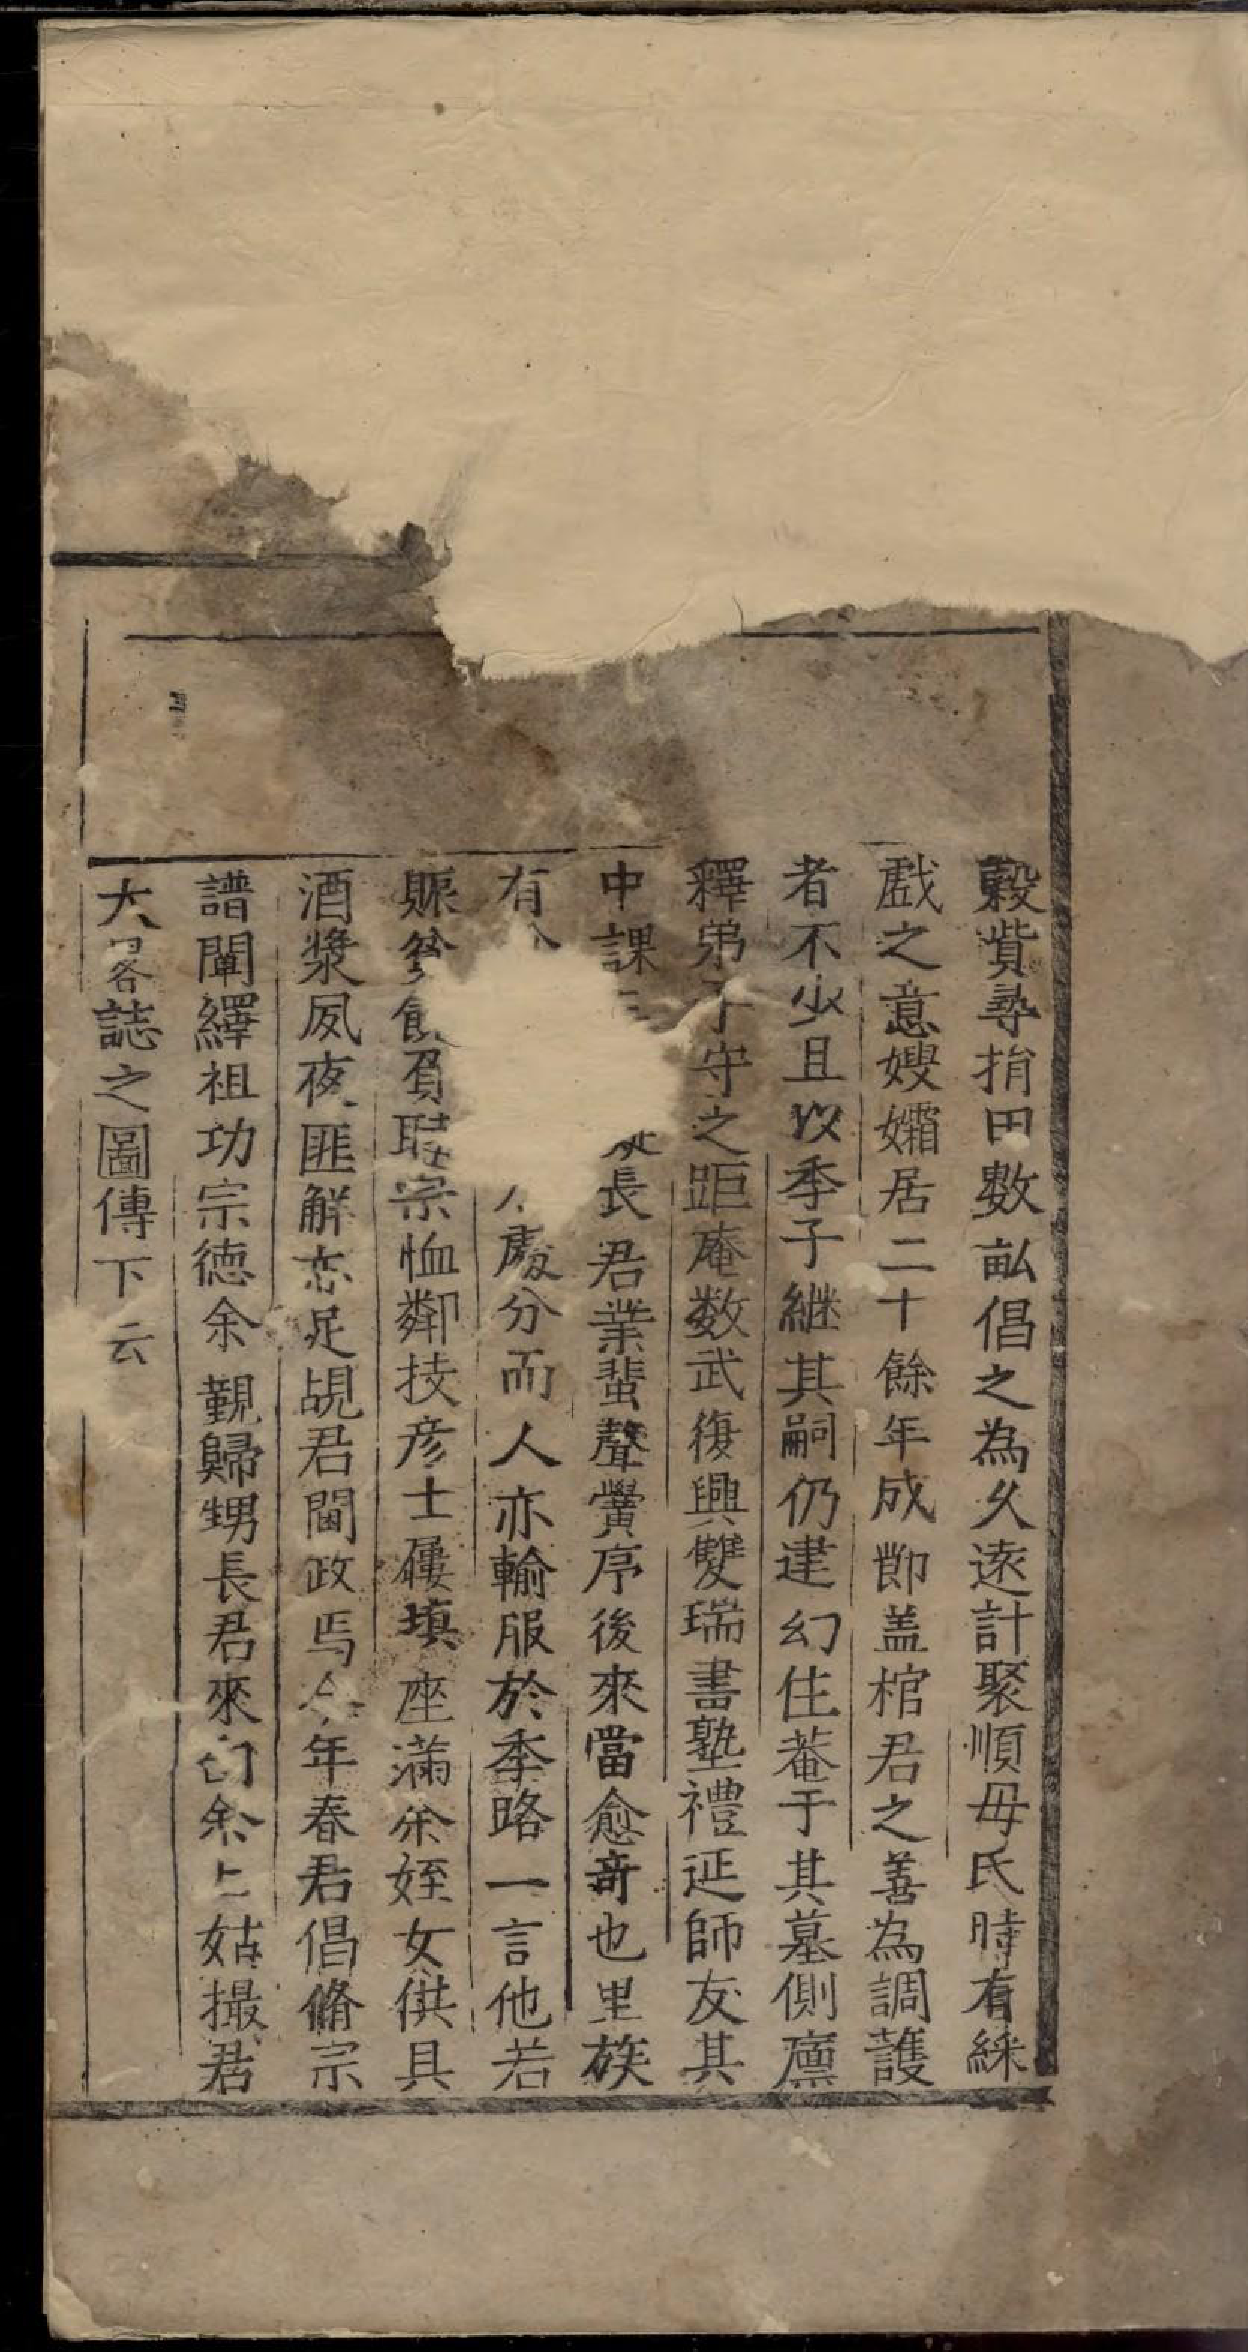 穀貲尋捐田數畝倡之為久遠計聚順母氏時有綵
戲之意嫂孀居二十餘年成卽盖棺君之善為調護
者不少且以季子継其嗣仍建幻住菴于其墓側廪
釋弟子守之距庵数武復興雙瑞書塾禮延師友其
中課長君業蜚聲黌序後來當愈竒也里族
有處分而人亦輸服於季略一言他若
賑貧宗恤鄰技彦士屨填座滿余姪女供具
酒漿夙夜匪解亦足覘君閫政焉今年春君倡脩宗
譜闡繹祖功宗徳余覲歸甥長君來余姑撮君
大畧誌之圖傳下云